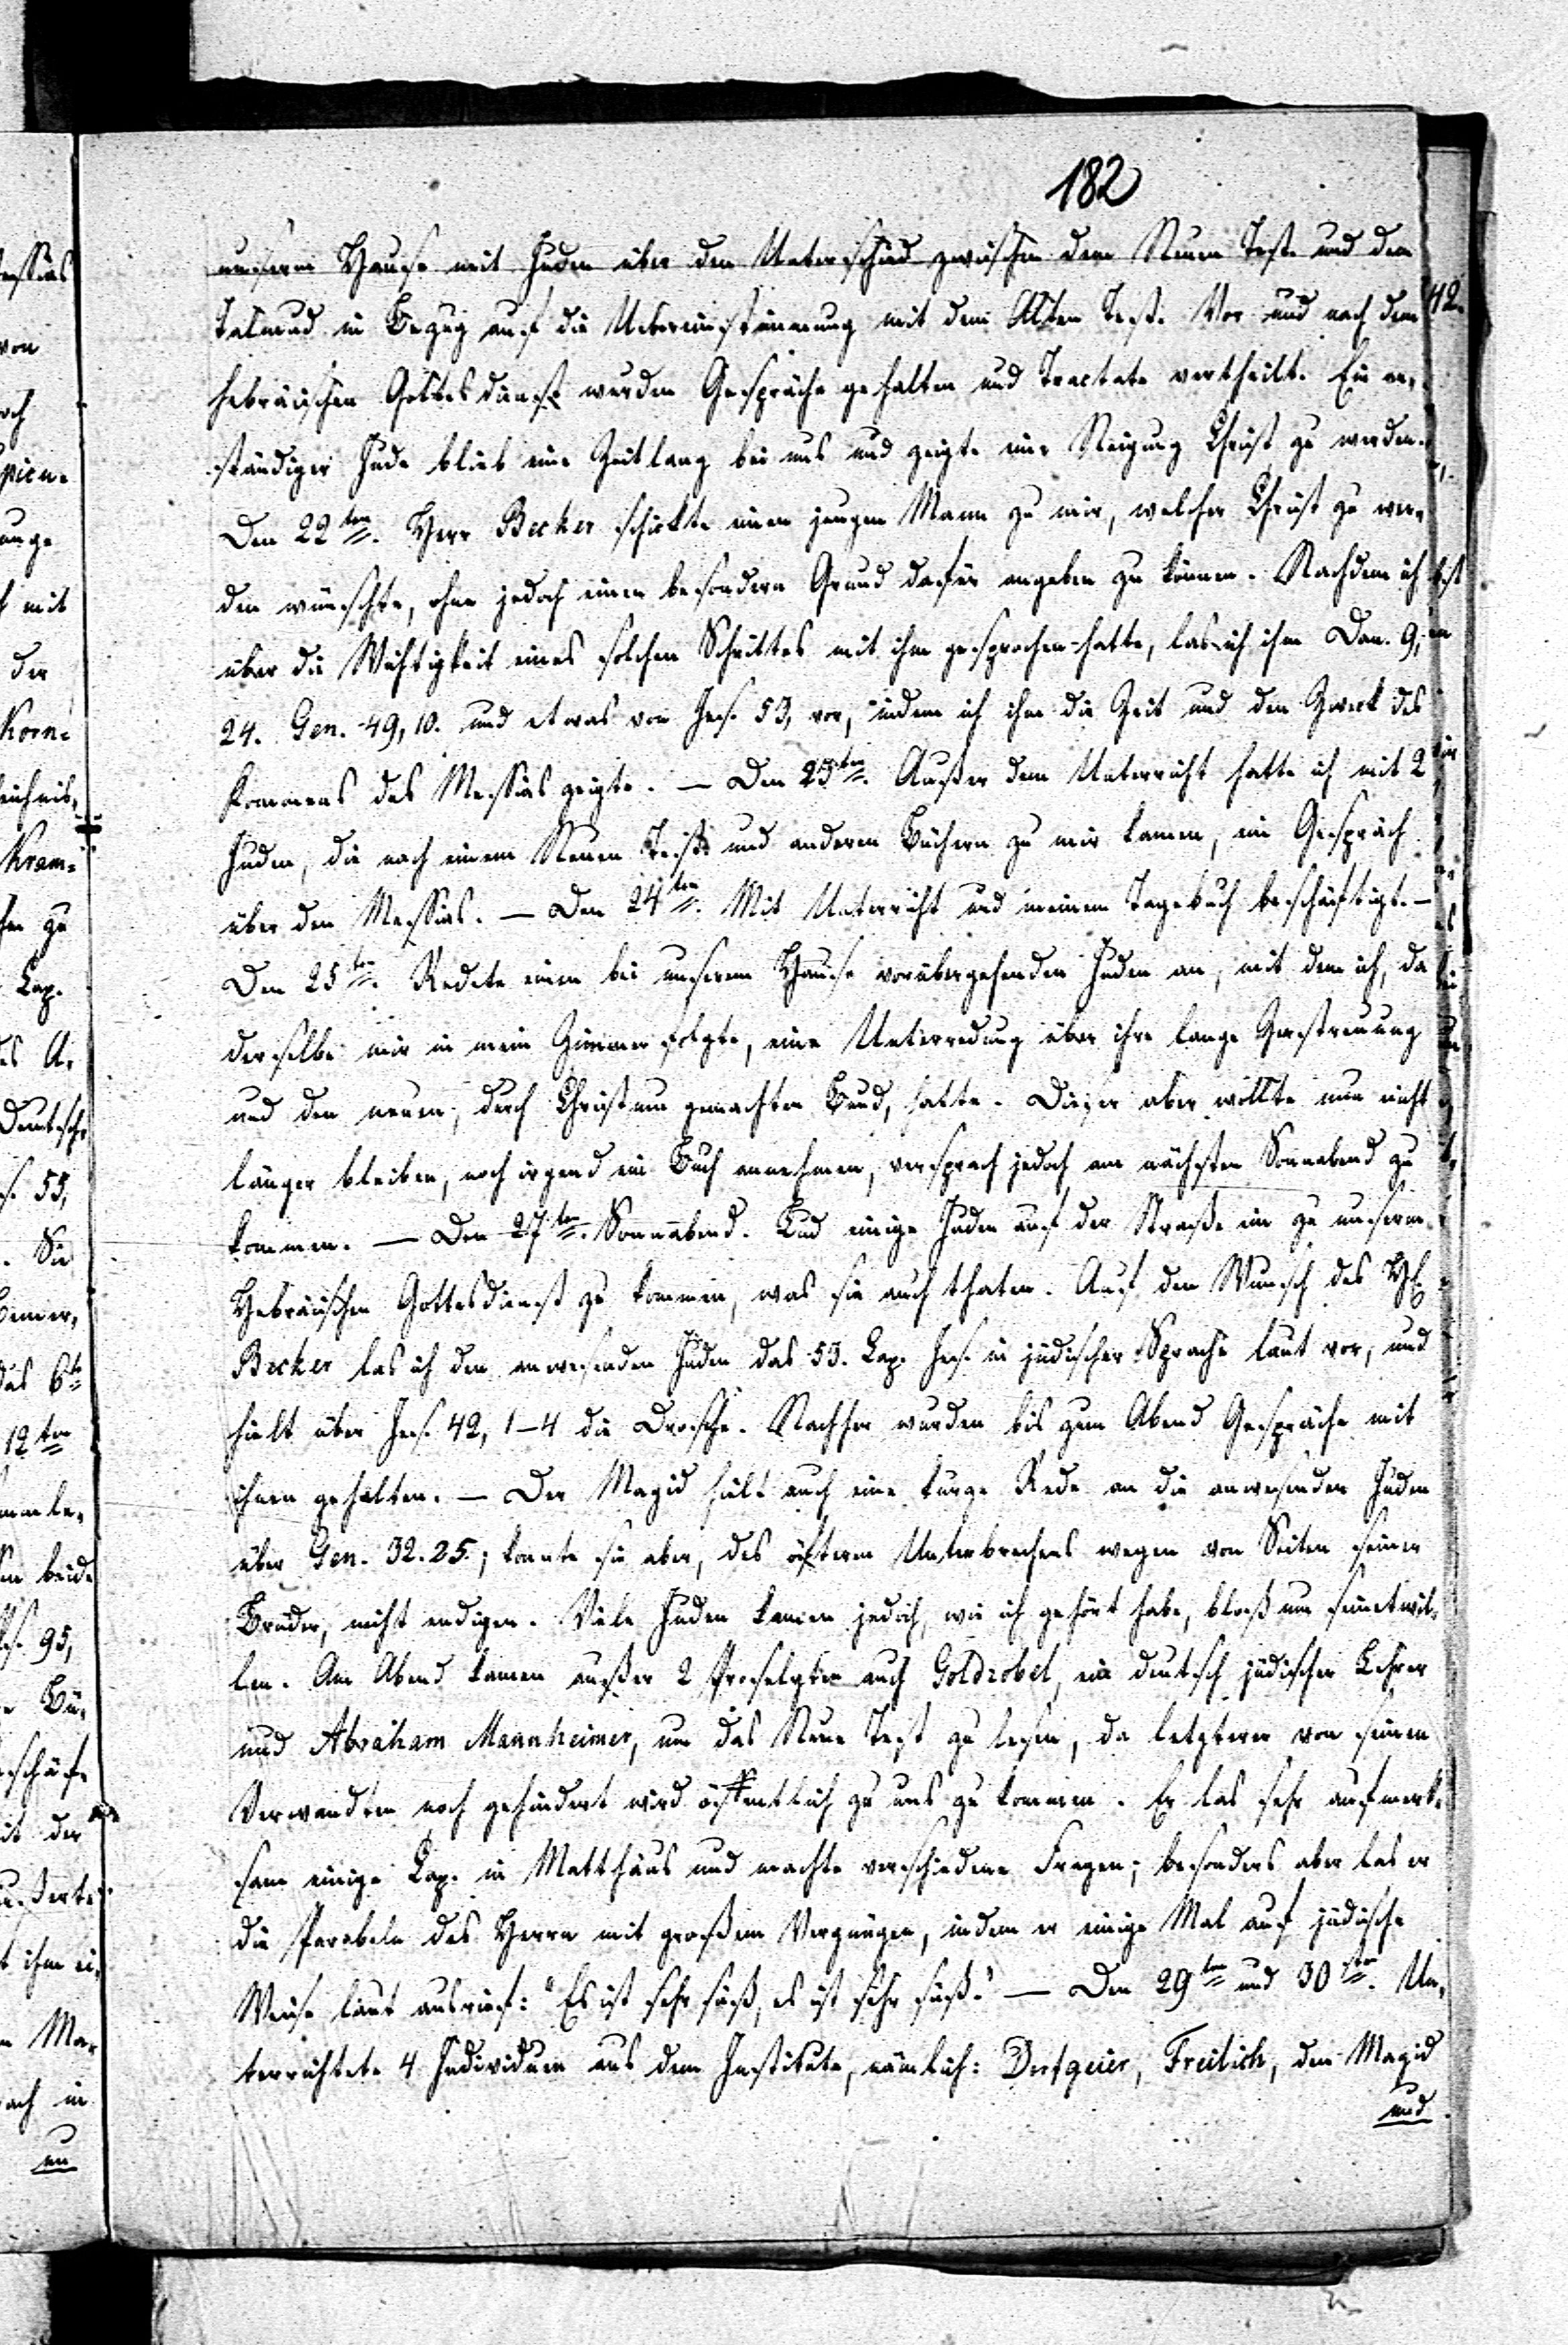 182
unserm Hause mit Juden über den Unterschied zwischen dem Neuen Test. und dem
Talmud in Bezug auf die Uebereinstimmung mit dem Alten Test. Vor und nach dem
hebräischen Gottesdienst wurden Gespräche gehalten und Tractate vertheilt. Ein ver-
ständiger Jude blieb eine Zeitlang bei uns und zeigte eine Neigung Christ zu werden.
Den 22ten. Herr Becker schickte einen jungen Mann zu mir, welcher Christ zu wer-
den wünschte, ohne jedoch einen besondern Grund dafür angeben zu können. Nachdem ich
über die Wichtigkeit eines solchen Schrittes mit ihm gesprochen hatte, las ich ihm Dan. 9,
24. Gen. 49, 10. und etwas von Jes. 53, vor, indem ich ihm die Zeit und den Zweck des
Kommens des Messias zeigte. — Den 23ten. Außer dem Unterricht hatte ich mit 2
Juden, die nach einem Neuen Test. und anderen Büchern zu mir kamen, ein Gespräch
über den Messias. — Den 24ten. Mit Unterricht und meinem Tagebuch beschäftigt. —
Den 25ten. Redete einen bei unserem Hause vorübergehenden Juden an, mit dem ich, da
derselbe mir in mein Zimmer folgte, eine Unterredung über ihre lange Zerstreuung
und den neuen, durch Christum gemachten Bund, hatte. Dieser aber wollte nun nicht
länger bleiben, noch irgend ein Buch annehmen, versprach jedoch am nächsten Sonnabend zu
kommen. — Den 27ten. Sonnabend. Lud einige Juden auf der Straße ein zu unserm
Hebräischen Gottesdienst zu kommen, was sie auch thaten. Auf den Wunsch des H.
Becker las ich den anwesenden Juden das 53. Cap. Jes. in jüdischer Sprache laut vor, und
hielt über Jes. 42, 1-4 die Drosche. Nachher wurden bis zum Abend Gespräche mit
ihnen gehalten. — Der Magid hielt auch eine kurze Rede an die anwesenden Juden
über Gen. 32. 25.; konnte sie aber, des öfteren Unterbrechens wegen von Seiten seiner
Brüder, nicht endigen. Viele Juden kamen jedoch, wie ich gehört habe, bloß um seinetwil-
len. Am Abend kamen außer 2 Proselyten auch Goldzobel, ein deutsch jüdischer Lehrer
und Abraham Mannheimer, um das Neue Test zu lesen, da letzterer von seinen
Verwandten noch gehindert wird öffentlich zu uns zu kommen. Er las sehr aufmerk-
sam einige Cap. in Matthäus und machte verschiedene Fragen; besonders aber las er
die Parabeln des Herrn mit großem Vergnügen, indem er einige Mal auf jüdische
Weise laut ausrief: "Es ist sehr süß, es ist sehr süß." — Den 29ten und 30ten. Un-
terrichtete 4 Individuen aus dem Institute, nämlich: Freilich, den Magid
und